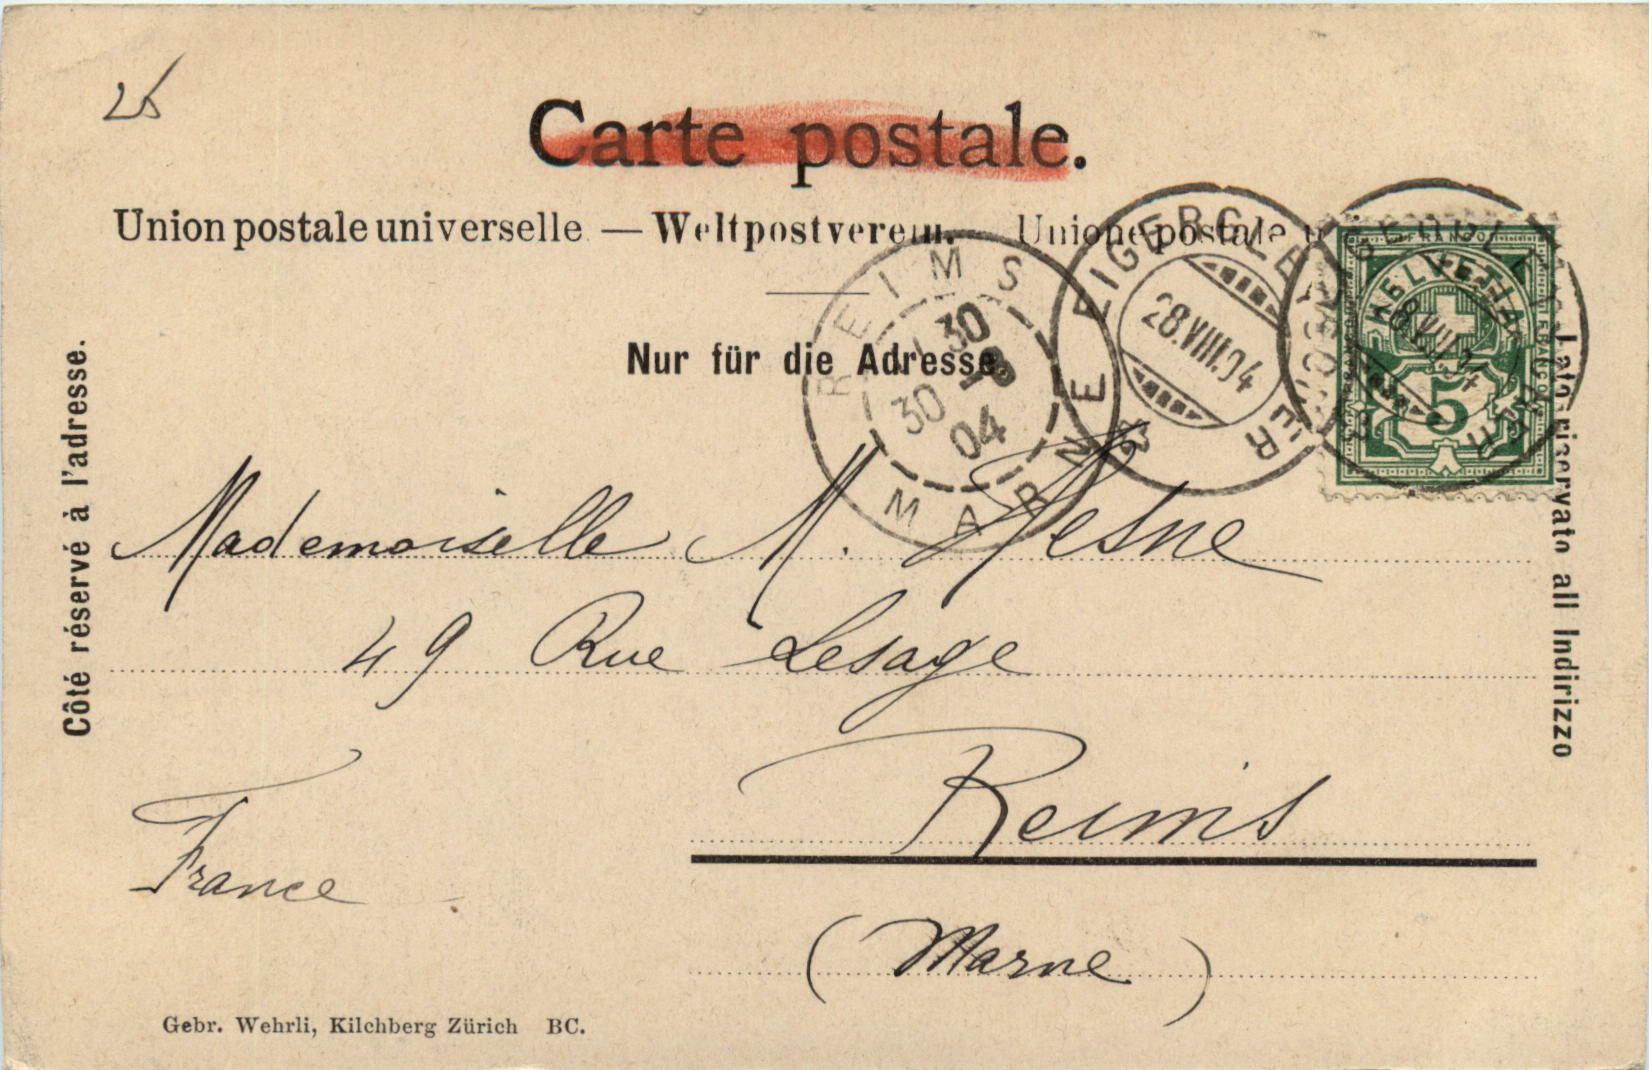 25
Carte postale.
Union postale universelle — Weltpostverein. Unione postale u
Nur für die Adresse.
Côté réservé à l'adresse.
Lato riservato all Indirizzo
REIMS
30
30 -8
04
MARNE
EIGERGLETSCHER
28.VIII.04
HELVETIA
FRANCO
5
Mademoiselle M. Hesne
49 Rue Lesage
Reims
France
(Marne)
Gebr. Wehrli, Kilchberg Zürich BC.